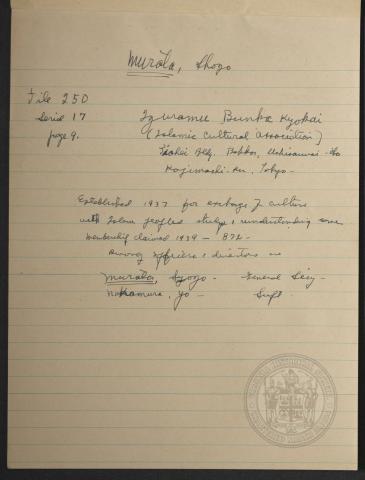 Murata, Shogo
File 250
Serial 17
page 9.
Isuramu Bunka Kyokai
(Islamic Cultural Association)
Bldg.
Kojimachi-ku, Tokyo-
Established 1937 for exchange of culture
with Islam peoples study & understanding
Membership claimed 1939 - 872 -
Among officers & directors are
Murata, Shogo - General Secy -
Nakamura, Yo - Supt.